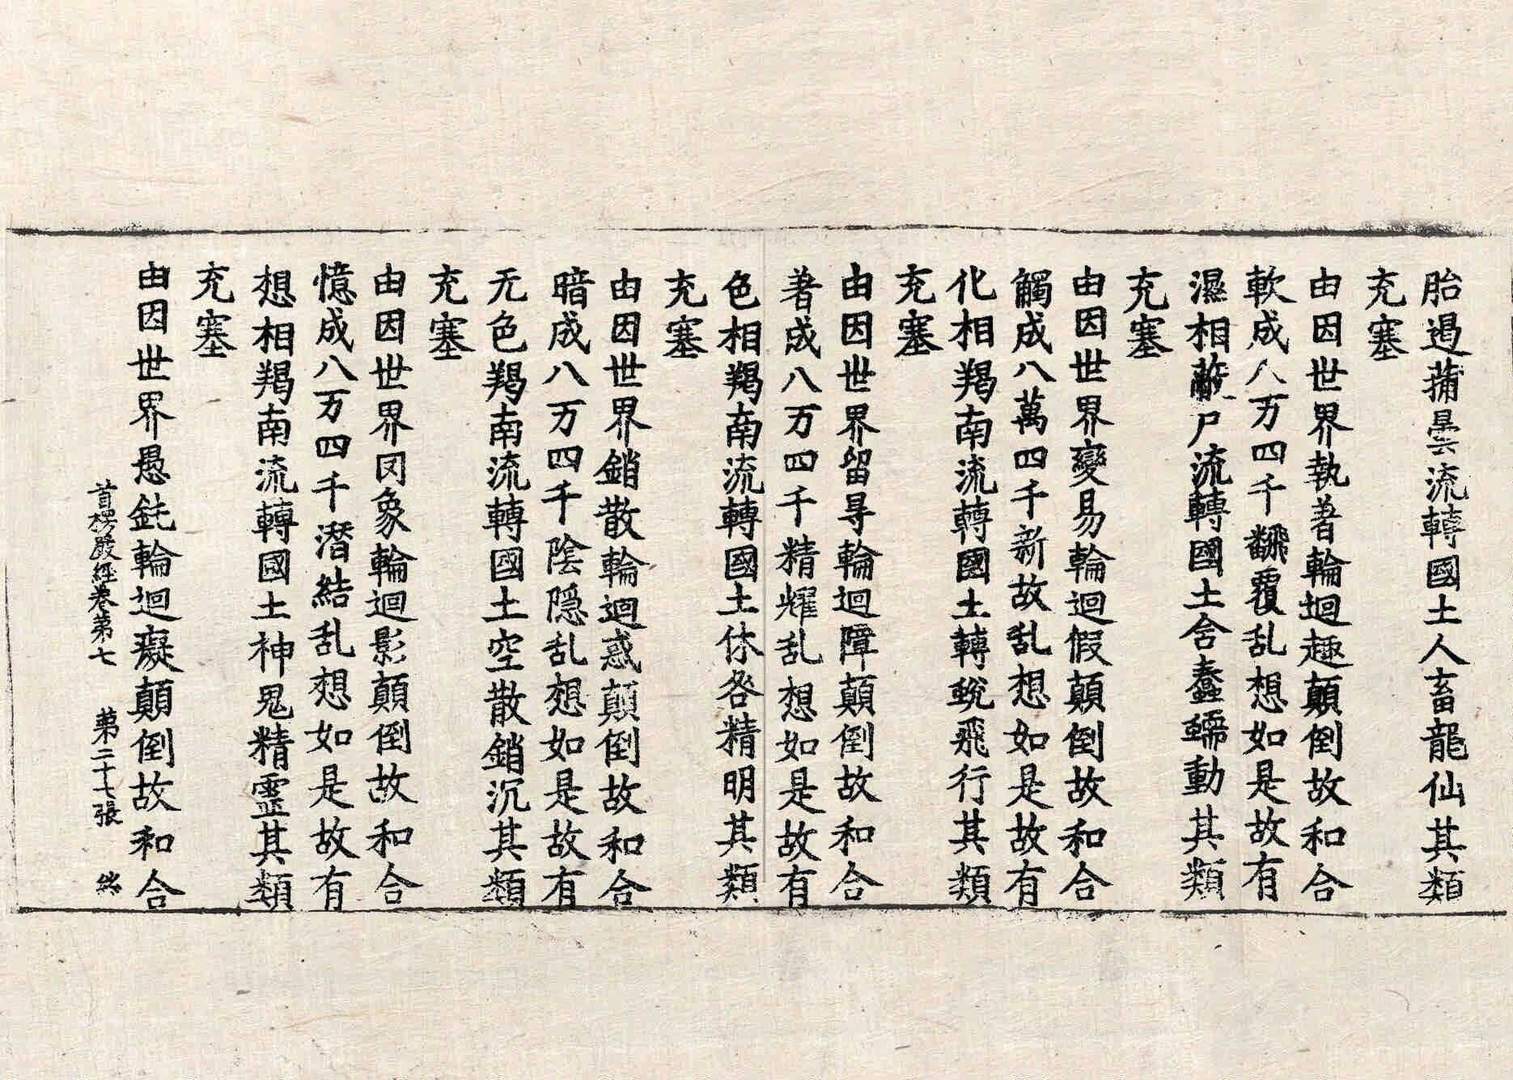 胎遏蒱曇流轉國土人畜龍仙其類
充塞
由因世界執著輪迴趣顛倒故和合
軟成八万四千飜覆乱想如是故有
濕相蔽尸流轉國土含蠢蠕動其類
充塞
由因世界變易輪迴假顛倒故和合
觸成八萬四千新故乱想如是故有
化相羯南流轉國土轉蛻飛行其類
充塞
由因世界留㝵輪迴障顛倒故和合
著成八万四千精耀乱想如是故有
色相羯南流轉國土休咎精明其類
充塞
由因世界銷散輪迴惑顛倒故和合
暗成八万四千陰隱乱想如是故有
无色羯南流轉國土空散銷沉其類
充塞
由因世界罔象輪迴影顛倒故和合
憶成八万四千潛結乱想如是故有
想相羯南流轉國土神鬼精靈其類
充塞
由因世界愚鈍輪迴癡顛倒故和合
首楞嚴經卷第七 第二十七張